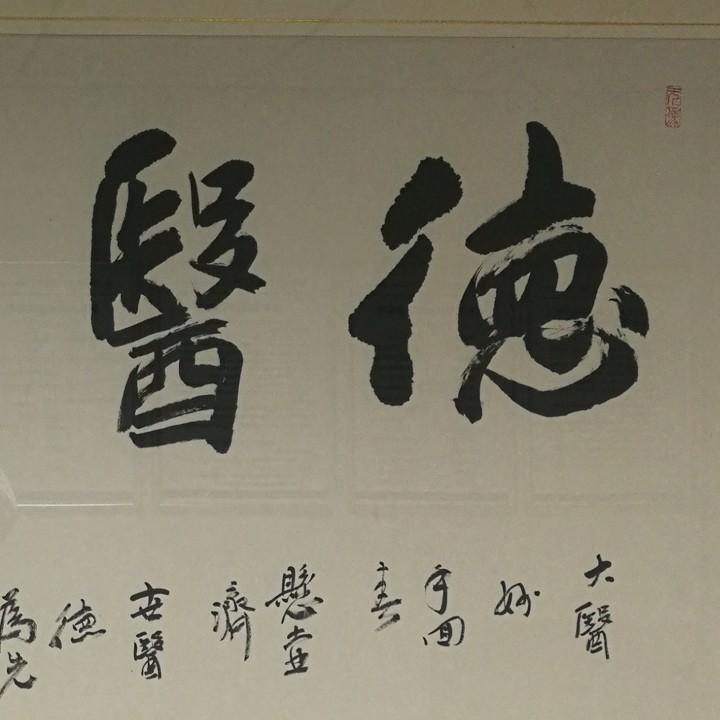 德醫
大醫
妙
手回
春
懸壺
濟
世醫
德
為先